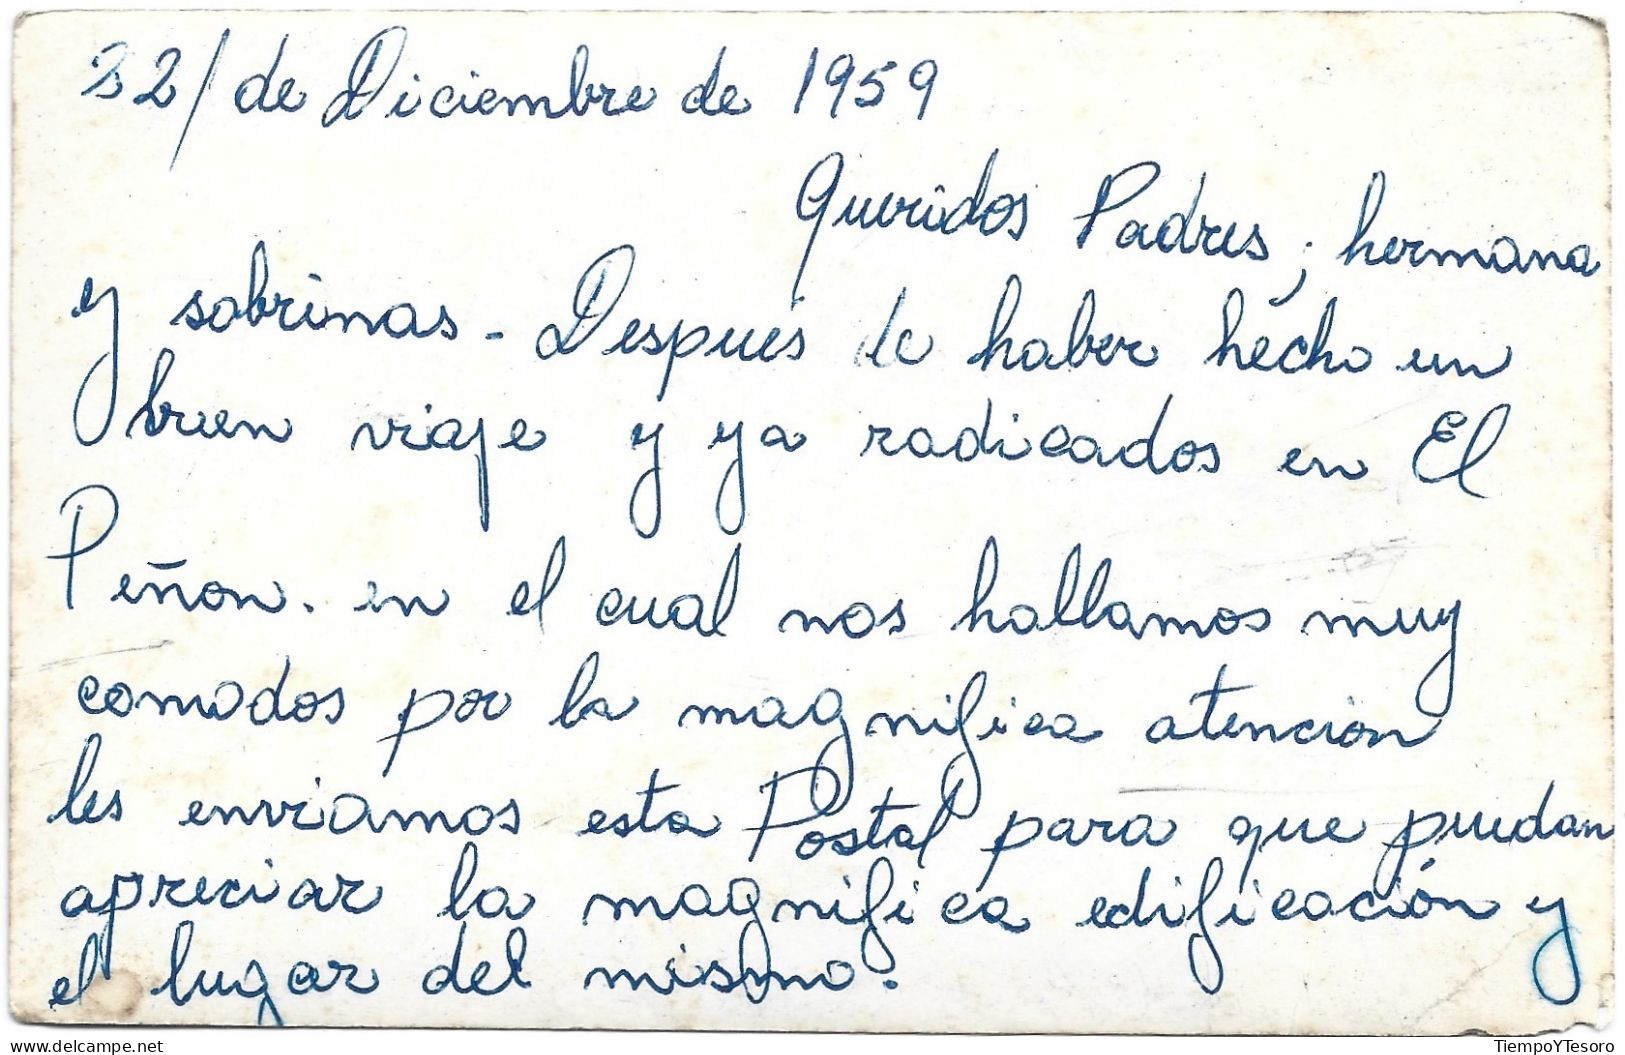 22/ de Diciembre de 1959
Queridos Padres; hermana
y sobrinas - Despues de haber hecho un
buen viaje y ya radicados en El
Peñon. en el cual nos hallamos muy
comodos por la magnifica atencion
les enviamos esta Postal para que puedan
apreciar la magnifica edificación y
el lugar del mismo.
TiempoYTesoro